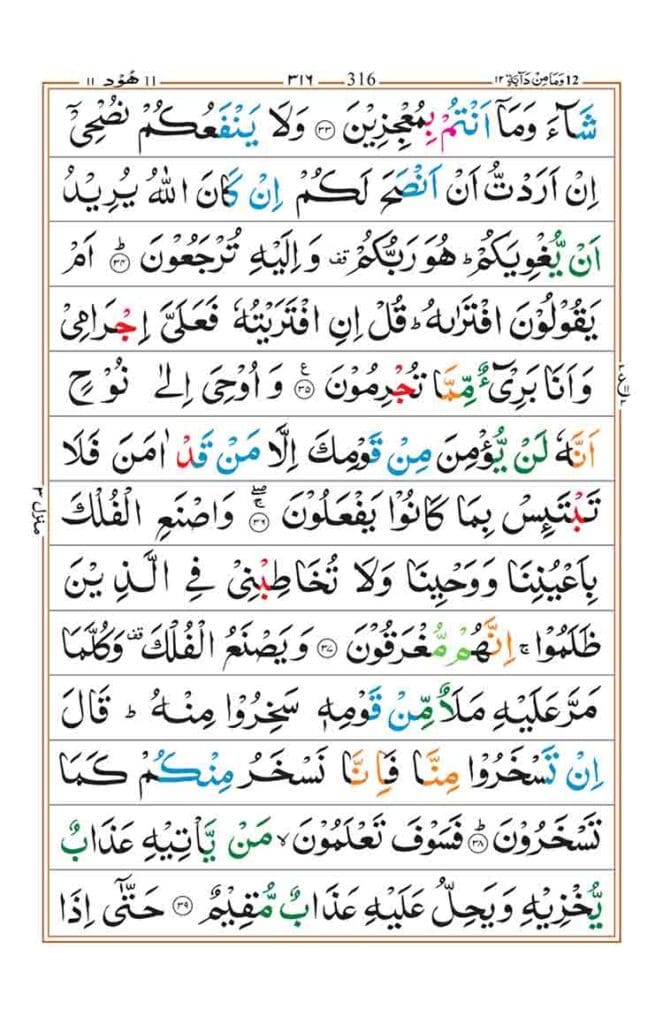 ١١ هُوْد ١١ ٣١٦ 316 12 وَمَا مِنْ دَآبَّةٍ ١٢
شَآءَ وَمَاۤ اَنْتُمْ بِمُعْجِزِيْنَ ۝٣٣ وَلَا يَنْفَعُكُمْ نُصْحِيْۤ
اِنْ اَرَدْتُّ اَنْ اَنْصَحَ لَكُمْ اِنْ كَانَ اللّٰهُ يُرِيْدُ
اَنْ يُّغْوِيَكُمْ ؕ هُوَ رَبُّكُمْ قف وَاِلَيْهِ تُرْجَعُوْنَ ؕ۝٣٤ اَمْ
يَقُوْلُوْنَ افْتَرٰىهُ ؕ قُلْ اِنِ افْتَرَيْتُهٗ فَعَلَيَّ اِجْرَامِيْ
وَاَنَا بَرِيْٓءٌ مِّمَّا تُجْرِمُوْنَ ۝٣٥ ع وَاُوْحِيَ اِلٰى نُوْحٍ
اَنَّهٗ لَنْ يُّؤْمِنَ مِنْ قَوْمِكَ اِلَّا مَنْ قَدْ اٰمَنَ فَلَا
تَبْتَىِٕسْ بِمَا كَانُوْا يَفْعَلُوْنَ ۝٣٦ۚۖ وَاصْنَعِ الْفُلْكَ
بِاَعْيُنِنَا وَوَحْيِنَا وَلَا تُخَاطِبْنِيْ فِي الَّذِيْنَ
ظَلَمُوْا ۚ اِنَّهُمْ مُّغْرَقُوْنَ ۝٣٧ وَيَصْنَعُ الْفُلْكَ قف وَكُلَّمَا
مَرَّ عَلَيْهِ مَلَاٌ مِّنْ قَوْمِهٖ سَخِرُوْا مِنْهُ ؕ قَالَ
اِنْ تَسْخَرُوْا مِنَّا فَاِنَّا نَسْخَرُ مِنْكُمْ كَمَا
تَسْخَرُوْنَ ؕ۝٣٨ فَسَوْفَ تَعْلَمُوْنَ ۙ مَنْ يَّاْتِيْهِ عَذَابٌ
يُّخْزِيْهِ وَيَحِلُّ عَلَيْهِ عَذَابٌ مُّقِيْمٌ ۝٣٩ حَتّٰۤى اِذَا
منزل ٣